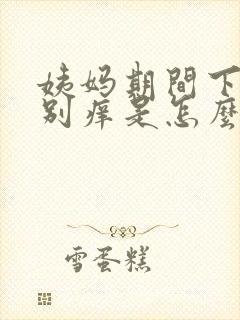 姨妈期間下
别痒是怎麼
雪蛋糕